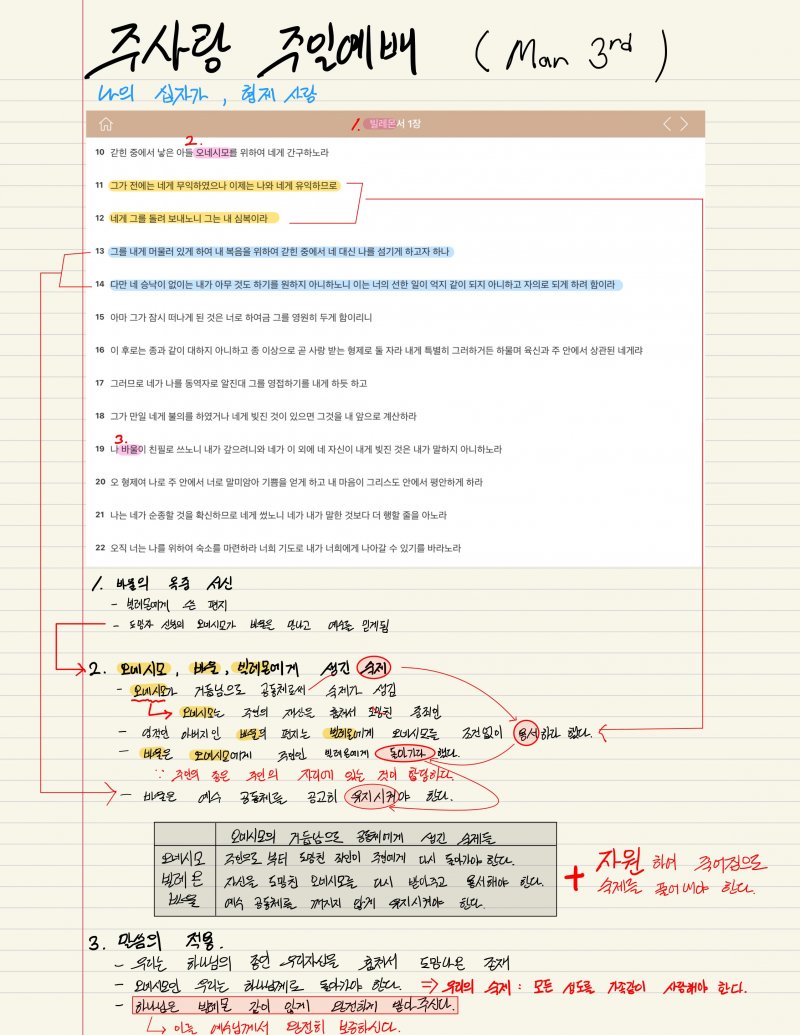 주사랑 주일예배 ( Mar 3rd )
나의 십자가, 형제 사랑
1. 빌레몬서 1장
2.
10 갇힌 중에서 낳은 아들 오네시모를 위하여 네게 간구하노라
11 그가 전에는 네게 무익하였으나 이제는 나와 네게 유익하므로
12 네게 그를 돌려 보내노니 그는 내 심복이라
13 그를 내게 머물러 있게 하여 내 복음을 위하여 갇힌 중에서 네 대신 나를 섬기게 하고자 하나
14 다만 네 승낙이 없이는 내가 아무 것도 하기를 원하지 아니하노니 이는 너의 선한 일이 억지 같이 되지 아니하고 자의로 되게 하려 함이라
15 아마 그가 잠시 떠나게 된 것은 너로 하여금 그를 영원히 두게 함이리니
16 이 후로는 종과 같이 대하지 아니하고 종 이상으로 곧 사랑 받는 형제로 둘 자라 내게 특별히 그러하거든 하물며 육신과 주 안에서 상관된 네게랴
17 그러므로 네가 나를 동역자로 알진대 그를 영접하기를 내게 하듯 하고
18 그가 만일 네게 불의를 하였거나 네게 빚진 것이 있으면 그것을 내 앞으로 계산하라
3.
19 나 바울이 친필로 쓰노니 내가 갚으려니와 네가 이 외에 네 자신이 내게 빚진 것은 내가 말하지 아니하노라
20 오 형제여 나로 주 안에서 너로 말미암아 기쁨을 얻게 하고 내 마음이 그리스도 안에서 평안하게 하라
21 나는 네가 순종할 것을 확신하므로 네게 썼노니 네가 내가 말한 것보다 더 행할 줄을 아노라
22 오직 너는 나를 위하여 숙소를 마련하라 너희 기도로 내가 너희에게 나아갈 수 있기를 바라노라
1. 바울의 옥중 서신
- 빌레몬에게 쓴 편지
- 도망자 신분의 오네시모가 바울을 만나고 예수를 믿게됨
2. 오네시모, 바울, 빌레몬에게 생긴 숙제
- 오네시모가 거듭남으로 공동체로써 숙제가 생김
오네시모는 주인의 재산을 훔쳐서 도망친 종이던
- 영적인 아버지인 바울의 편지는 빌레몬에게 오네시모를 조건없이 용서하라 했다.
- 바울은 오네시모에게 주인인 빌레몬에게 돌아가라 했다.
∵ 주인의 종은 주인의 자리에 있는 것이 합당하다.
- 바울은 예수 공동체를 공고히 유지시켜야 한다.
오네시모의 거듭남으로 공동체에게 생긴 숙제들
오네시모 주인으로 부터 도망친 죄인이 주인에게 다시 돌아가야 한다.
빌레몬 자신을 도망친 오네시모를 다시 받아주고 용서해야 한다.
바울 예수 공동체를 깨지지 않게 유지시켜야 한다.
+ 자원하여 죽어짐으로
숙제를 풀어내야 한다.
3. 말씀의 적용.
- 우리는 하나님의 종인 우리자신을 훔쳐서 도망나온 존재
- 오네시모인 우리는 하나님께로 돌아가야 한다. ⇒ 우리의 숙제 : 모든 성도를 가족같이 사랑해야 한다.
- 하나님은 빌레몬 같이 있게 완전하게 받아주신다.
이는 예수님께서 완전히 보증하신다.